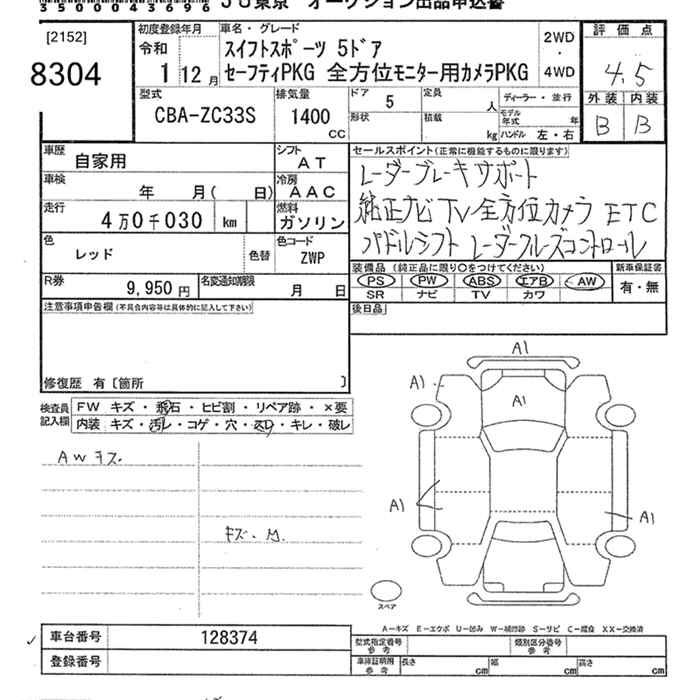 35000043696 JU東京 オークション出品申込書
[2152]
8304
初度登録年月
令和
1 12月
車名・グレード
スイフトスポーツ 5ドア
セーフティPKG 全方位モニター用カメラPKG
2WD
・
4WD
評価点
4.5
外装 内装
B B
型式
CBA-ZC33S
排気量
1400
CC
ドア 5
形状
定員 人
積載 kg
ディーラー・並行
モデル年式 年
ハンドル 左・右
車歴 自家用
シフト AT
車検 年 月( 日)
冷房 AAC
走行 4万0千030 km
燃料 ガソリン
色 レッド 色替
色コード ZWP
R券 9,950円
名変通知期限 月 日
セールスポイント(正常に機能するものに限ります)
レーダーブレーキサポート
純正ナビ TV 全方位カメラ ETC
パドルシフト レーダークルーズコントロール
装備品(純正品に限り○をつけてください)
新車保証書
PS PW ABS エアB AW
SR ナビ TV カワ
有・無
後日品
注意事項申告欄(不具合内容等は具体的に記入して下さい)
修復歴 有〔箇所 〕
検査員記入欄
FW キズ・飛石・ヒビ割・リペア跡・×要
内装 キズ・汚レ・コゲ・穴・スレ・キレ・破レ
AWキズ
キズ・M.
A1
A1
A1
A1
A1
スペア
A-キズ E-エクボ U-凹み W-補修跡 S-サビ C-腐食 XX-交換済
車台番号 128374
登録番号
型式指定番号 参考
類別区分番号 参考
車庫証明用 参考
長さ cm 幅 cm 高さ cm